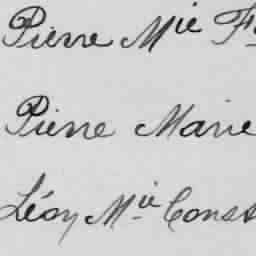 Pierre Mie F
Pierre Marie
Léon Mie Cons